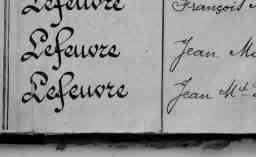 Lefeuvre François
Lefeuvre Jean M
Lefeuvre Jean Mie